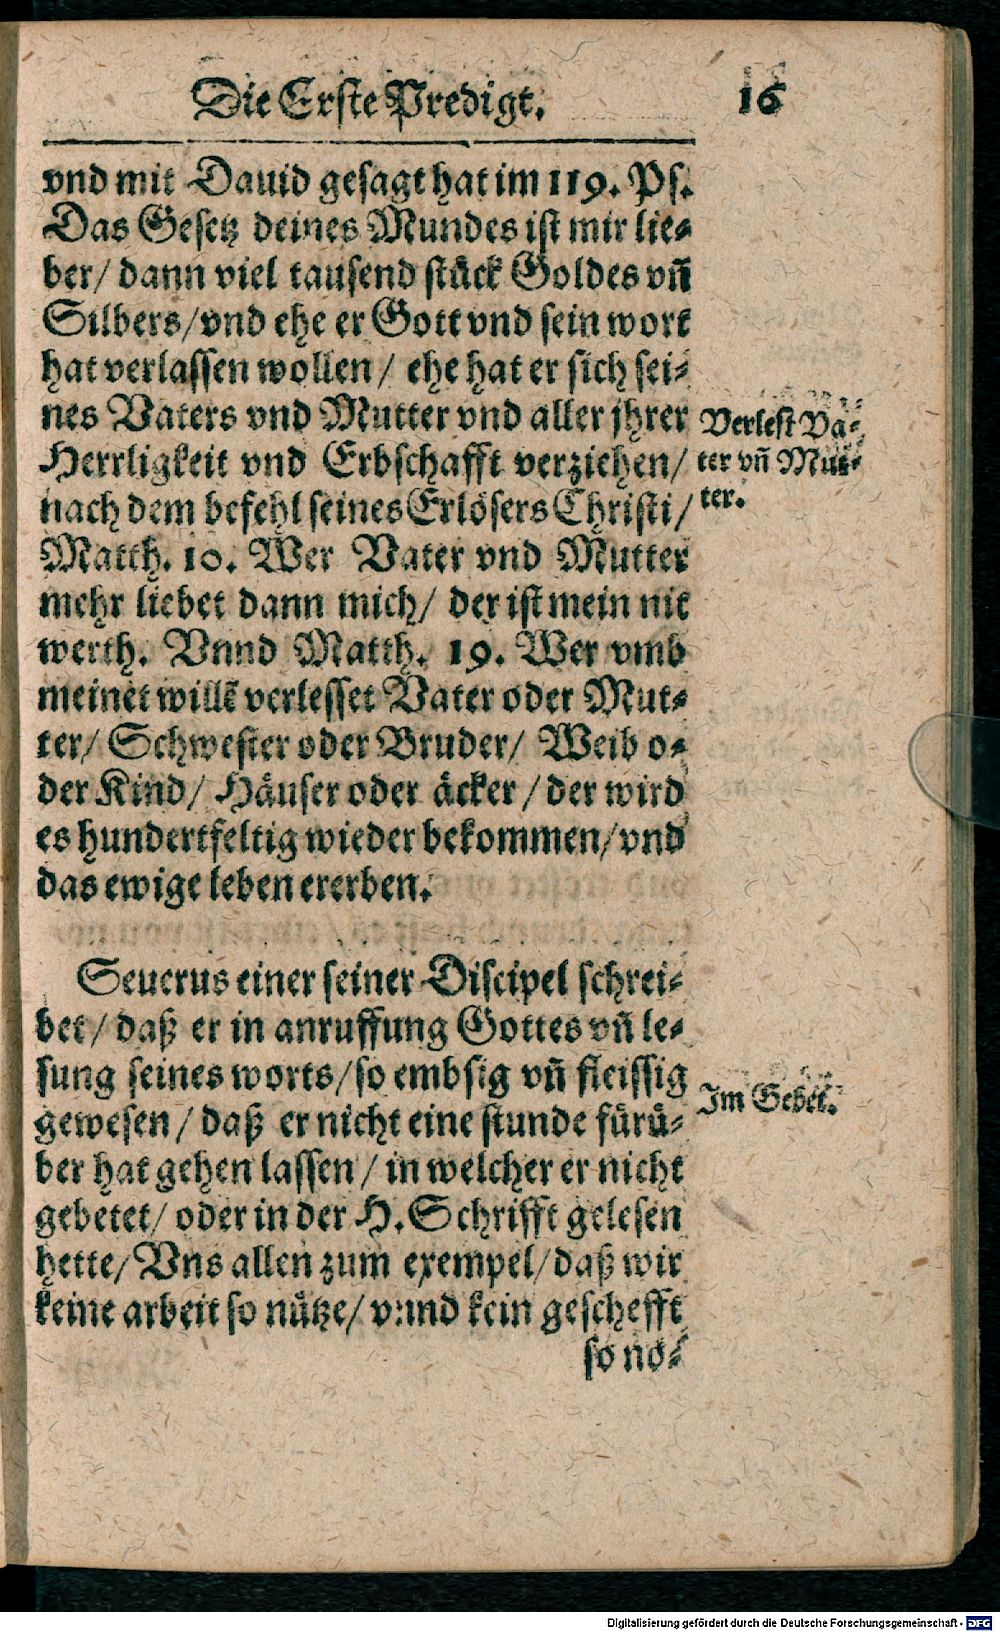 Die Erste Predigt. 16
vnd mit Dauid gesagt hat im 119. Ps.
Das Gesetz deines Mundes ist mir lie-
ber/ dann viel tausend stůck Goldes vñ
Silbers/vnd ehe er Gott vnd sein wort
hat verlassen wollen/ ehe hat er sich sei-
nes Vaters vnd Mutter vnd aller jhrer
Herrligkeit vnd Erbschafft verziehen/
nach dem befehl seines Erlösers Christi/
Matth. 10. Wer Vater vnd Mutter
mehr liebet dann mich/ der ist mein nit
werth. Vnnd Matth. 19. Wer vmb
meinet willẽ verlesset Vater oder Mut-
ter/ Schwester oder Bruder/ Weib o-
der Kind/ Häuser oder äcker/der wird
es hundertfeltig wieder bekommen/vnd
das ewige leben ererben.
Verlest Va-
ter vñ Mut-
ter.
Seuerus einer seiner Discipel schrei-
bet/ daß er in anruffung Gottes vñ le-
sung seines worts/so embsig vñ fleissig
gewesen/ daß er nicht eine stunde fůrů-
ber hat gehen lassen/ in welcher er nicht
gebetet/ oder in der H. Schrifft gelesen
hette/ Vns allen zum exempel/daß wir
keine arbeit so nůtze/ vnnd kein geschefft
so nö-
Im Gebet.
Digitalisierung gefördert durch die Deutsche Forschungsgemeinschaft - DFG